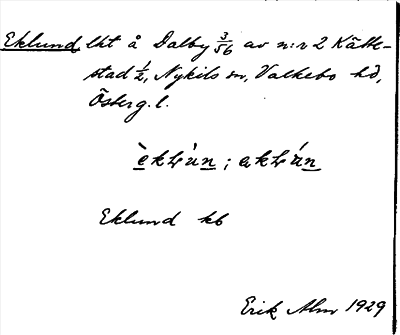 Eklund, lht å Dalby 3/56 av n:r 2 Kätte-
stad 1/2, Nykils sn, Valkebo hd,
Österg. l.
Eklund kb
Erik Alm 1929